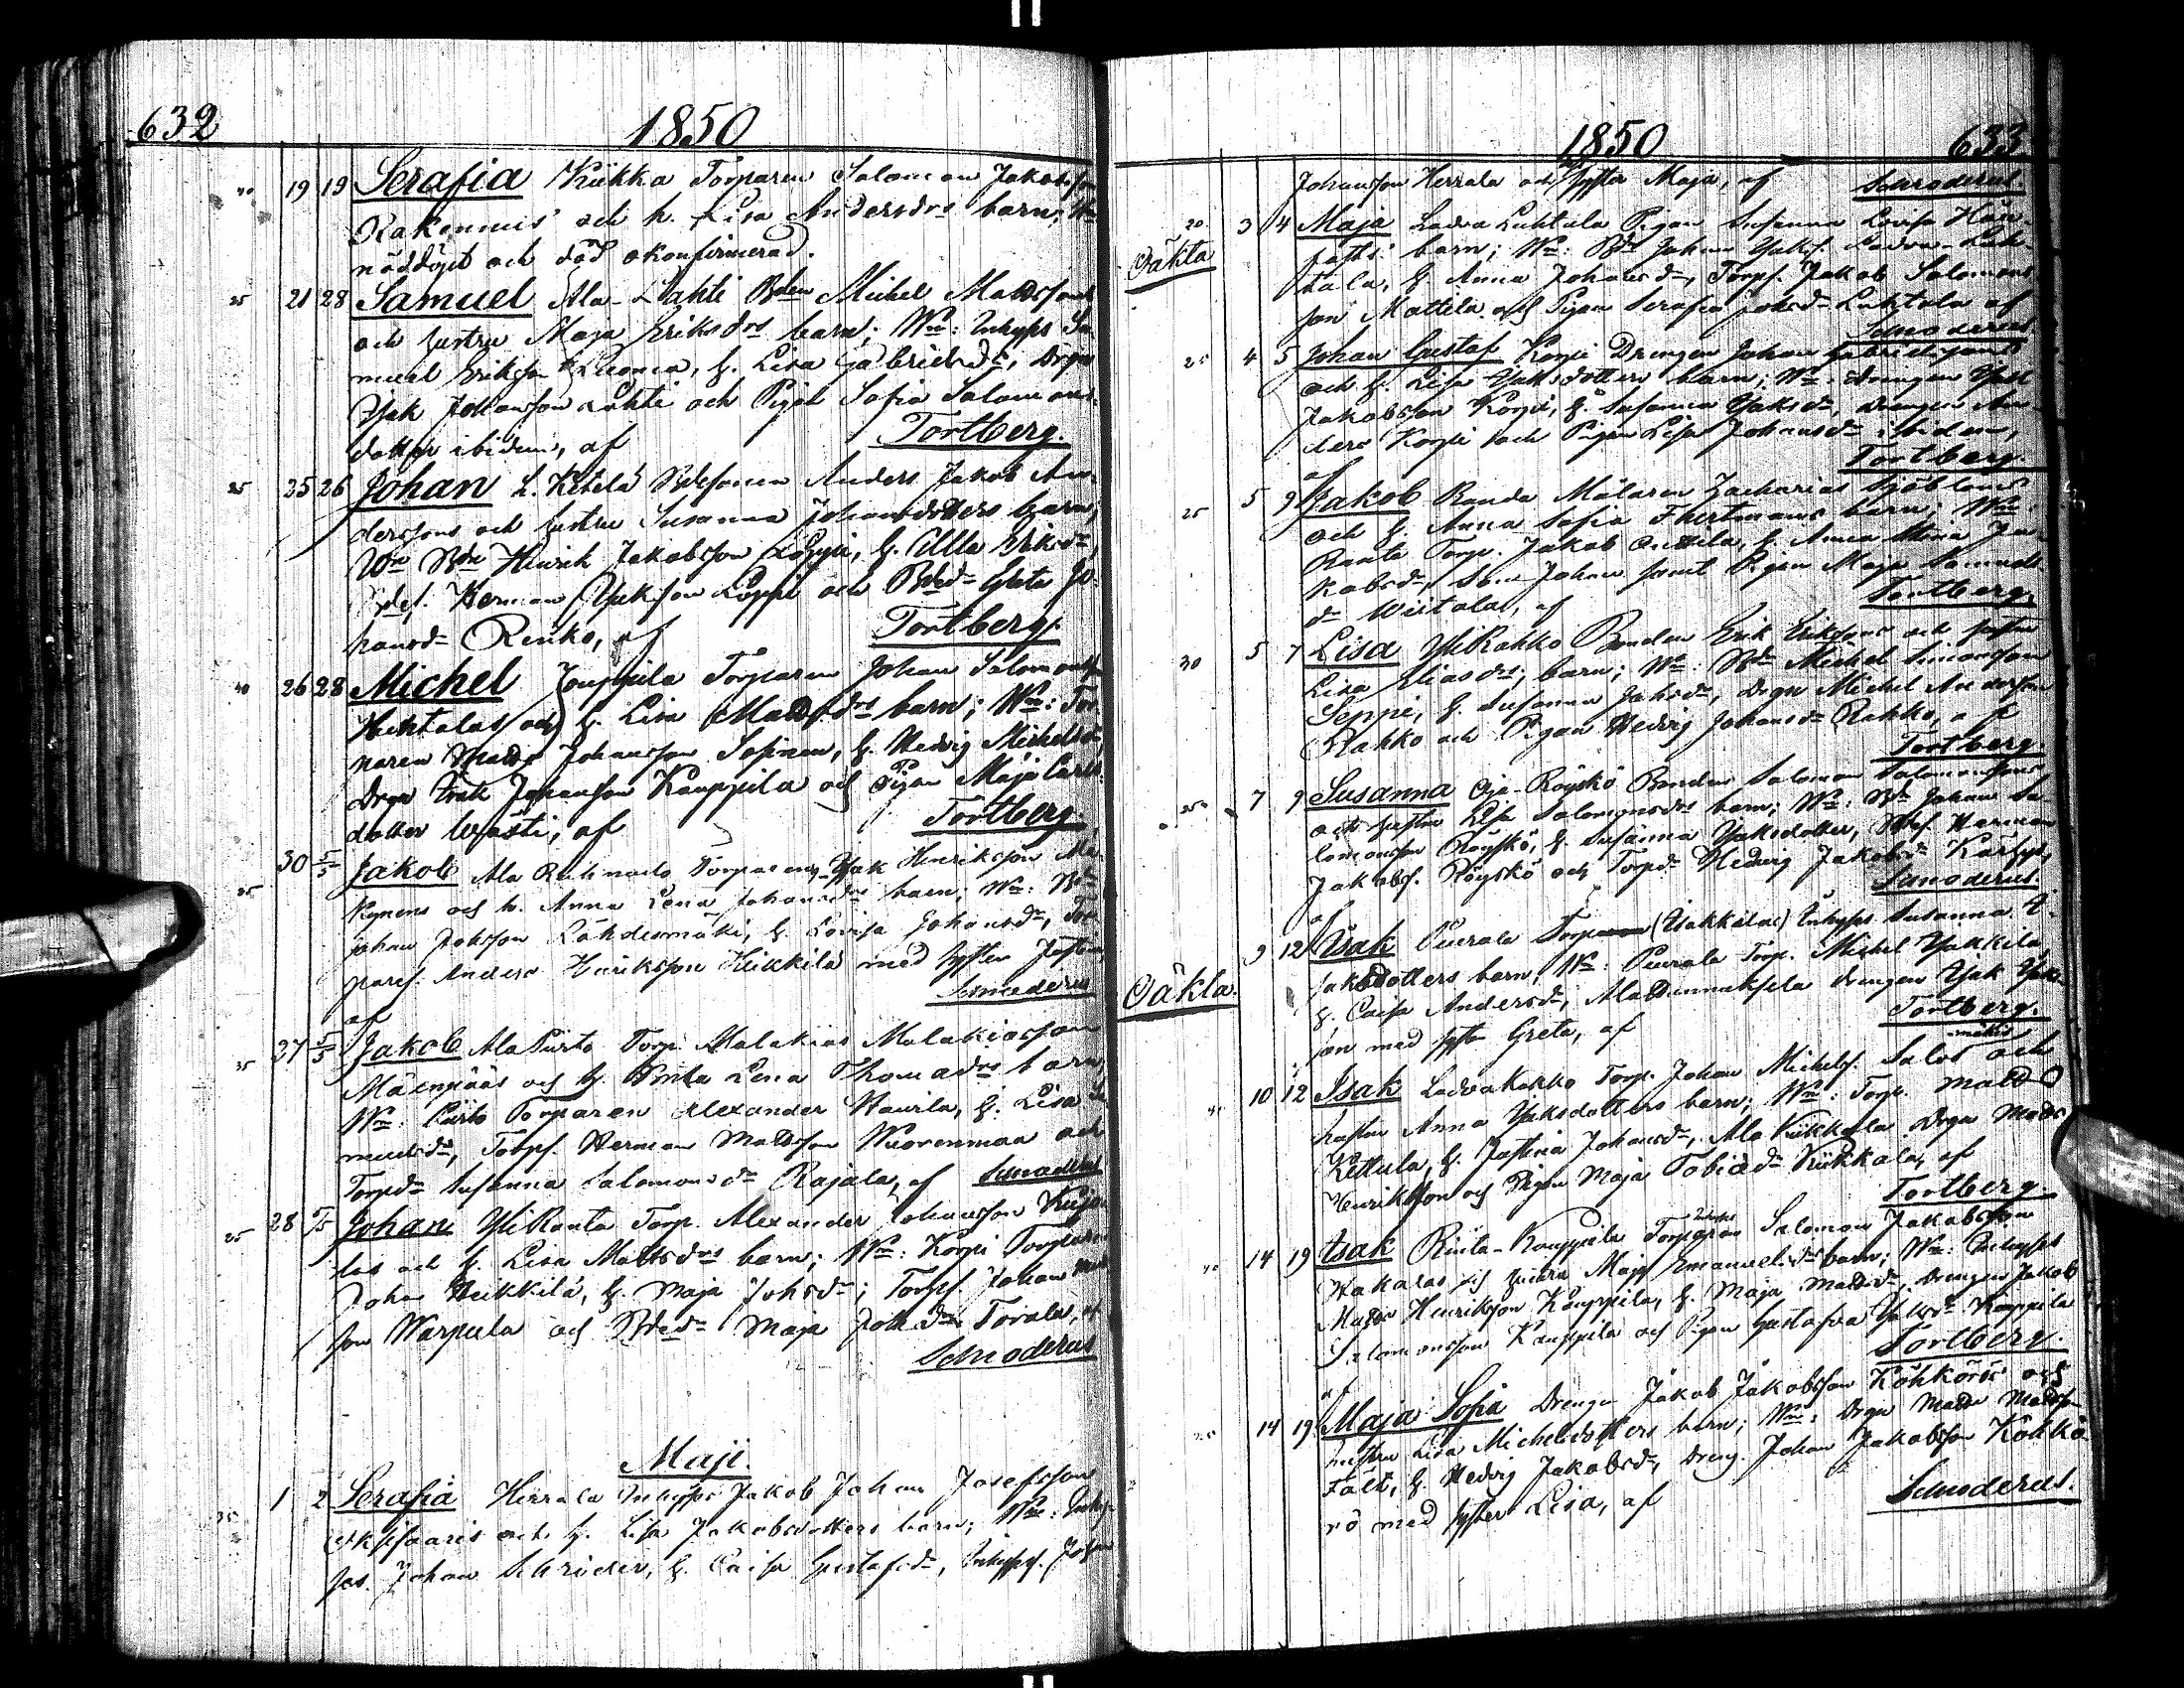 632
1850
40 19 19 Serafia Kiikka Torparen Salomon Jakobsson
Rakennus och h. Lisa Andersdrs barn; Wn
nöddöpt och död okonfirmerad.
25 21 28 Samuel Ala-Lahti Bden Michel Mattssons
och hustru Maja Eriksdrs barn; Wn: Inhyss Sa-
muel Eriksson Luoma, h. Lisa Gabrielsdr, Drgn
Isak Johansson Lahti och Pigan Sofia Salomons-
dotter ibidem, af Tortberg.
25 25 26 Johan L. Ketela Bdesonen Anders Jakob An-
derssons och hustru Susanna Johansdotters barn;
Wn Bdn Hinrik Jakobsson Loppi, h. Ulla Eriksdr,
Bdes. Herman Isaksson Loppi och Bdedr Greta Jo-
hansdr Renko, af Tortberg.
40 26 28 Michel Jouppila Torparen Johan Salomonsson
Huhtalas och h. Lisa Mattsdrs barn; Wn: Tor-
paren Matts Johansson Soinen, h. Hedvig Michelsdr,
Drgn Isak Johansson Kauppila och Pigan Maja Carls-
dotter af Tortberg.
25 30 5/5 Jakob Ala Torparen Isak Henriksson
och h. Anna Lena Johansdrs barn; Wn: Bdn
Johan Johsson Lähdesmäki, h. Lovisa Johansdr, Tor-
pares. Anders Henriksson Heikkilä med syster
af Schroderus
35 27 5/5 Jakob Ala Piirto Torp. Malakias Malakiasson
Mäenpääs och h. Lena Thomadrs barn;
Wn: Piirto Torparen Alexander Haurila, h. Lisa Sa-
muelsdr, Torps. Herman Mattsson Wuorenmaa och
Torpdr Susanna Salomonsdr Rajala, af Schroderus
25 28 5/5 Johan YliRanta Torp. Alexander Johansson
och h. Lisa Mattsdrs barn; Wn: Korpi Torparen
Johan Heikkilä, h. Maja Johsdr; Torps. Johan Matts-
son Warpula och Bdedr Maja Johdr Torala, af
Schroderus
Maji.
35 1 2 Serafia Herrala Inhyss Jakob Johan Josefssons
och h. Lisa Jakobsdotters barn; Wn: Inhy-
ses. Johan Schröder, h. Caisa Gustafsdr, Inhyss. Johan
1850 633
Johansson Herrala och syster Maja, af Schroderus.
20 3 4 Maja Ladva Luhtala Pigan Susanna Lovisa
Oäkta
barn; Wn: Bdn Johan Isaks. Ladva-Luh-
tala, h. Anna Johansdr, Torps. Jakob Salomons-
son Mattila och Pigan Serafia Johsdr Luhtala af
Schroderus
25 4 5 Johan Gustaf Korpi Drengen Johan Gabrielssons
och h. Lisa Isaksdotters barn; Wn: Drengen Isak
Jakobsson Korpi, h. Susanna Isaksdr, Drengen An-
ders Korpi och Pigan Lisa Johansdr ibidem,
af Tortberg.
25 5 9 Jakob Randa Målaren Zacharias Sjöbloms
och h. Anna Sofia barn; Wn:
Ranta Torp. Jakob Anttila, h. Anna Stina Ja-
kobsdr, Son Johan samt Pigan Maja Samuels-
dr Wiitala, af Tortberg.
30 5 7 Lisa YliRahko Bonden Erik Erikssons och hustru
Lisa Eliasdrs barn; Wn: Bdn Michel Simonsson
Seppi, h. Susanna Johsdr, Drgn Michel Andersson
Rahko och Pigan Hedvig Johansdr Rahko, af
Tortberg
25 7 9 Susanna Oja-Röyskö Bonden Salomon Salomonssons
och hustru Lisa Salomonsdrs barn; Wn: Bdn Johan Sa-
lomonsson Röyskö, h. Susanna Isaksdotter, Bdes. Herman
Jakobs. Röyskö och Torpdr Hedvig Jakobsdr
af Schroderus.
9 12 Isak Peurala (Isakkilas) Inhyses Susanna I-
saksdotters barn; Wn: Peurala Torp. Michel Isakkila,
Oäkta.
h. Caisa Andersdr, drengen Isak Isaks-
son med syster Greta, af Tortberg.
10 12 Isak Ladvakokko Torp. Johan Michels. Salos och
hustru Anna Isaksdotters barn; Wn: Torp. Matts
Kettula, h. Justina Johansdr, Ala Kiikkala Drgn Matts
Henriksson och Pigan Maja Tobiasdr Kiikkala, af
Tortberg.
40 14 19 Isak Rinta-Kauppila Salomon Jakobsson
Hakaras och hustru Maja Emanuelsdrs barn; Wn: Inhyses
Matts Henriksson Kauppila, h. Maja Mattsdr, Drengen Jakob
Salomonsson Kauppila och Pigan Gustafva Isaksdr Kauppila
af Tortberg.
25 14 19 Maja Sofia Drengen Jakob Jakobsson Köhkörös och
hustru Lisa Michelsdotters barn; Wn: Drgn Matts Mattsson
Fält, h. Hedvig Jakobsdr, Dreng. Johan Jakobsson Köhkö-
rö med syster Lisa, af Schroderus.